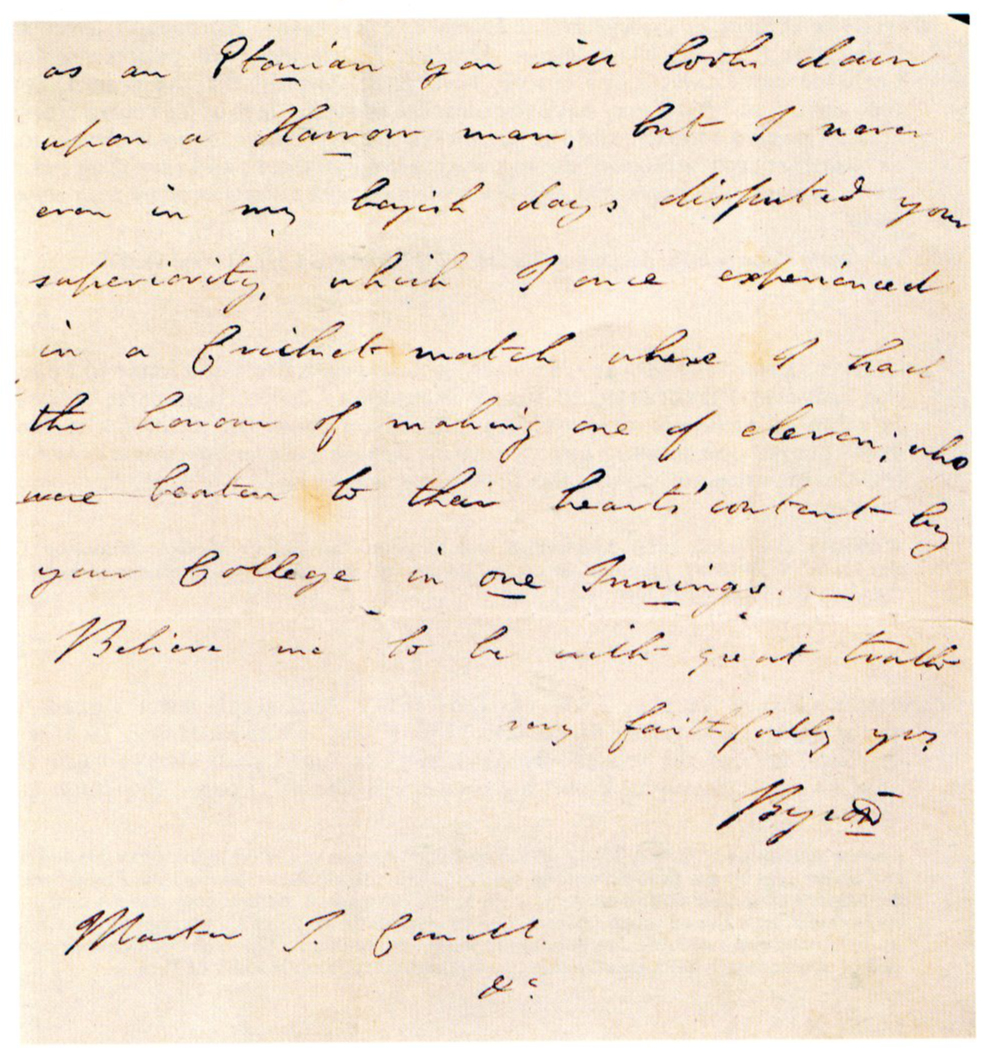 as an Etonian you will look down
upon a Harrow man, but I never
even in my boyish days disputed your
superiority, which I once experienced
in a Cricket match where I had
the honour of making one of eleven; who
were beaten to their hearts' content by
your College in one Innings. —
Believe me to be with great truth
very faithfully yrs
Byron
Master J. Cowell.
&c